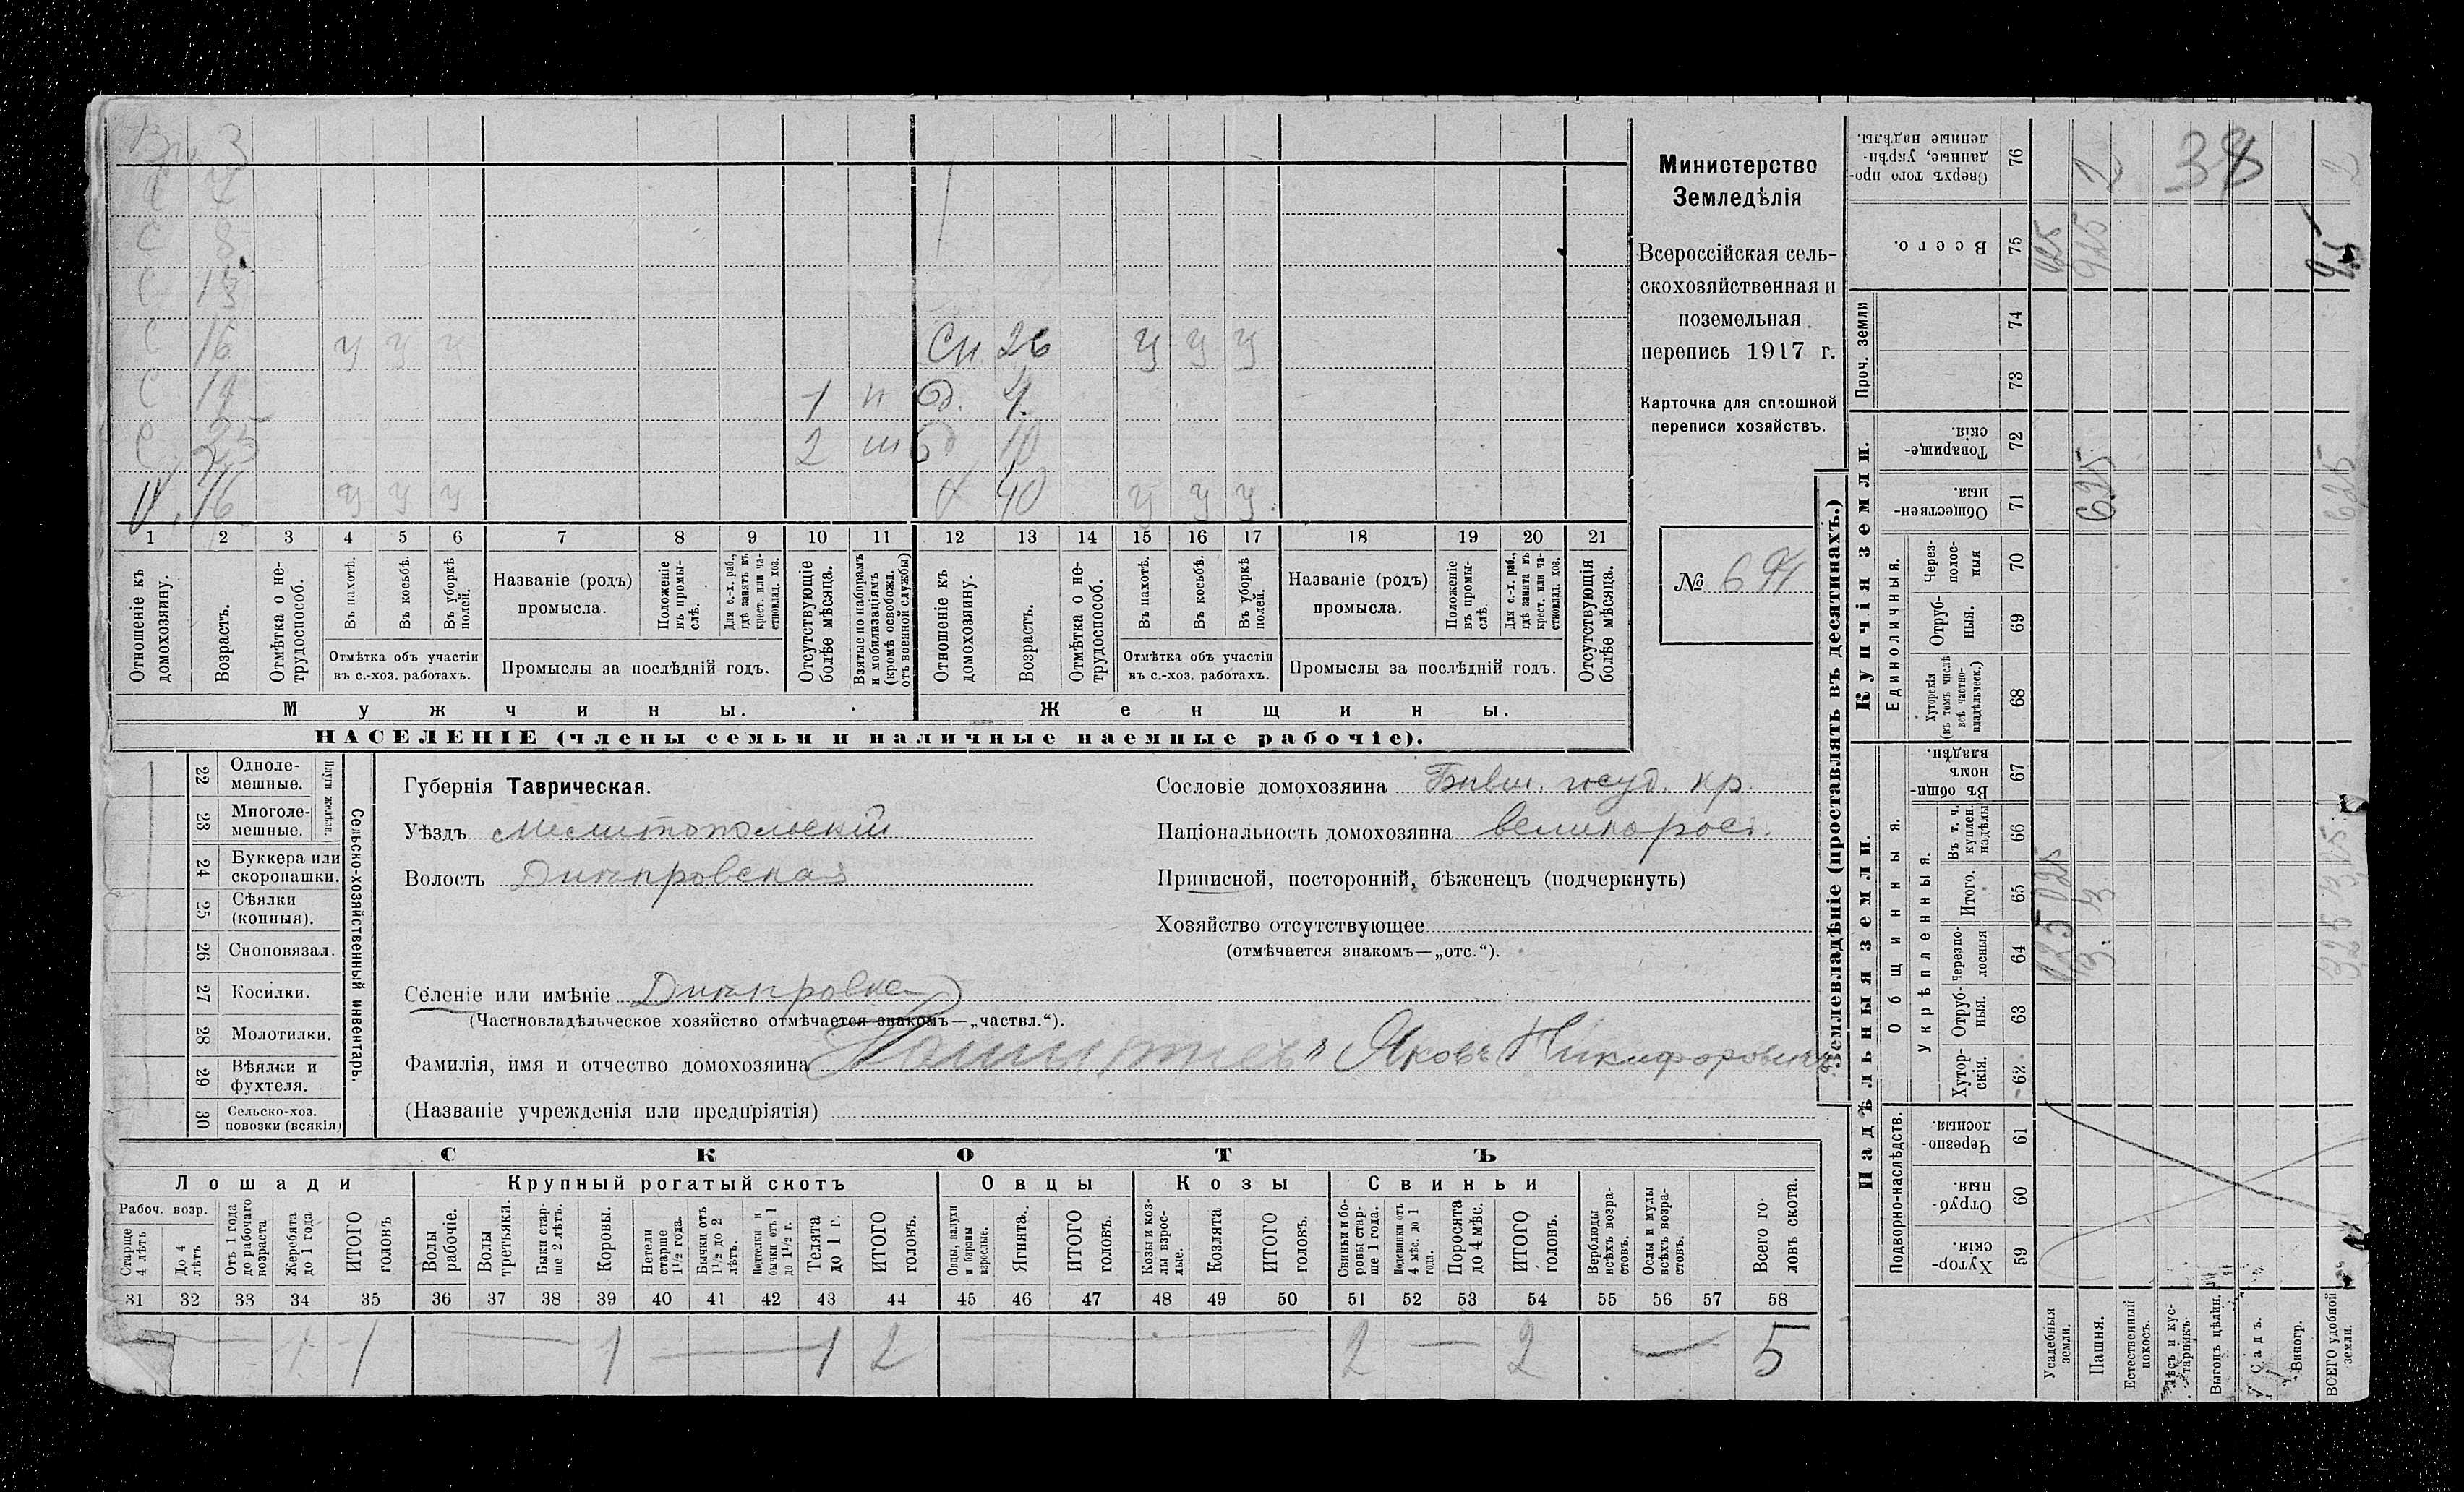 Вн. 3
С
С 8
С 13
С 16 у у у Сн. 26 у у у
С 14 1 п д. 4.
С 25 2 ш д 10
М. 46 у у у Ж 40 у у у
1 2 3 4 5 6 7 8 9 10 11 12 13 14 15 16 17 18 19 20 21
Отношеніе къ домохозяину.
Возрастъ.
Отмѣтка о не-трудоспособ.
Въ пахотѣ.
Въ косьбѣ.
Въ уборкѣ полей.
Отмѣтка объ участіи
въ с.-хоз. работахъ.
Названіе (родъ)
промысла.
Положеніе въ промы-слѣ.
Для с.-х. раб., гдѣ занятъ въ крест. или ча-стновлад. хоз.
Промыслы за послѣдній годъ.
Отсутствующіе болѣе мѣсяца.
Взятые по наборамъ и мобилизаціямъ (кромѣ освобожд. отъ военной службы)
Отношеніе къ домохозяину.
Возрастъ.
Отмѣтка о не-трудоспособ.
Въ пахотѣ.
Въ косьбѣ.
Въ уборкѣ полей.
Отмѣтка объ участіи
въ с.-хоз. работахъ.
Названіе (родъ)
промысла.
Положеніе въ промы-слѣ.
Для с.-х. раб., гдѣ занята въ крест. или ча-стновлад. хоз.
Промыслы за послѣдній годъ.
Отсутствующія болѣе мѣсяца.
Мужчины. Женщины.
НАСЕЛЕНІЕ (члены семьи и наличные наемные рабочіе).
Министерство
Земледѣлія
Всероссійская сель-
скохозяйственная и
поземельная
перепись 1917 г.
Карточка для сплошной
переписи хозяйствъ.
№ 694
22 Одноле-мешные.
23 Многоле-мешные.
Плуги желѣзн.
24 Буккера или скоропашки.
25 Сѣялки (конныя).
26 Сноповязал.
27 Косилки.
28 Молотилки.
29 Вѣялки и фухтеля.
30 Сельско-хоз. повозки (всякія)
Сельско-хозяйственный инвентарь.
Губернія Таврическая.
Уѣздъ Мелитопольскій
Волость Днѣпровская
Селеніе или имѣніе Днѣпровка
(Частновладѣльческое хозяйство отмѣчается знакомъ—„частвл.“).
Фамилія, имя и отчество домохозяина Яковъ Никифоровичъ
(Названіе учрежденія или предпріятія)
Сословіе домохозяина Бывш. госуд. кр.
Національность домохозяина великорос.
Приписной, посторонній, бѣженецъ (подчеркнуть)
Хозяйство отсутствующее
(отмѣчается знакомъ—„отс.“).
СКОТЪ
Лошади Крупный рогатый скотъ Овцы Козы Свиньи
Рабоч. возр.
Старше 4 лѣтъ
До 4 лѣтъ
Отъ 1 года до рабочаго возраста
Жеребята до 1 года
ИТОГО головъ
Волы рабочіе.
Волы третьяки.
Быки стар-ше 2 лѣтъ.
Коровы.
Нетели старше 1½ года.
Бычки отъ 1½ до 2 лѣтъ.
Подтелки и бычки отъ 1 до 1½ г.
Телята до 1 г.
ИТОГО головъ.
Овцы, валухи и бараны взрослые.
Ягнята.
ИТОГО головъ.
Козы и коз-лы взрос-лые.
Козлята
ИТОГО головъ.
Свиньи и бо-ровы стар-ше 1 года.
Подсвинки отъ 4 мѣс. до 1 года.
Поросята до 4 мѣс.
ИТОГО головъ.
Верблюды всѣхъ возра-стовъ.
Ослы и мулы всѣхъ возра-стовъ.
Всего го-ловъ скота.
31 32 33 34 35 36 37 38 39 40 41 42 43 44 45 46 47 48 49 50 51 52 53 54 55 56 57 58
1 1 1 1 2 2 — 2 — 5
Землевладѣніе (проставлять въ десятинахъ.)
Надѣльныя земли. Купчія земли. Проч. земли
Подворно-наслѣдств.
Общинныя.
Укрѣпленныя.
Единоличныя.
59 Хутор-скія.
60 Отруб-ныя.
61 Черезпо-лосныя.
62 Хутор-скія.
63 Отруб-ныя.
64 Черезпо-лосныя
65 Итого.
66 Въ т. ч. куплен. надѣлы
67 Въ общи-номъ владѣн.
68 Хуторскія (въ томъ числѣ всѣ частно-владѣльческ.)
69 Отруб-ныя.
70 Через-полос-ныя
71 Обществен-ныя.
72 Товарище-скія.
73
74
75 Всего.
76 Сверхъ того про-данные, укрѣп-ленные надѣлы.
Усадебныя земли. 025 025 025
Пашня. 3. 3 625 925 2
Естественный покосъ.
Лѣсъ и кус-тарникъ.
Выгонъ цѣлин.
Садъ.
Виногр.
ВСЕГО удобной земли. 325 325 625 95 2
38